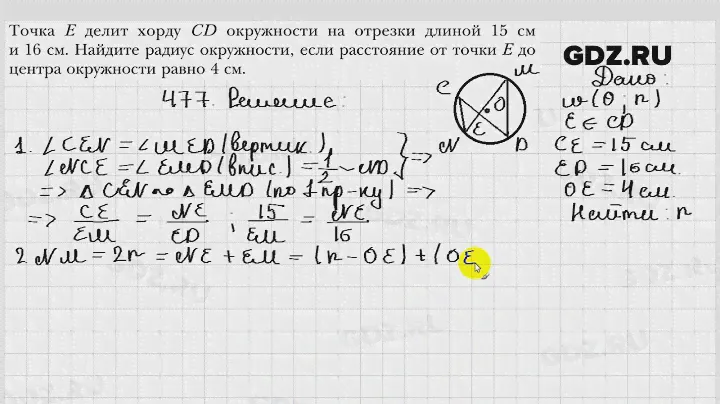 Точка E делит хорду CD окружности на отрезки длиной 15 см
и 16 см. Найдите радиус окружности, если расстояние от точки E до
центра окружности равно 4 см.
GDZ.RU
477. Решение:
C
M
O
E
N
D
Дано:
w(O; r)
E ∈ CD
CE = 15 см
ED = 16 см.
OE = 4 см.
Найти: r
1. ∠CEN = ∠MED (вертик.),
∠NCE = ∠EMD (впис.) = 1/2 ◡ND. } =>
=> △CEN ∾ △EMD (по 1 пр-ку) =>
=> CE/EM = NE/ED ; 15/EM = NE/16
2 NM = 2r = NE + EM = (r - OE) + (OE